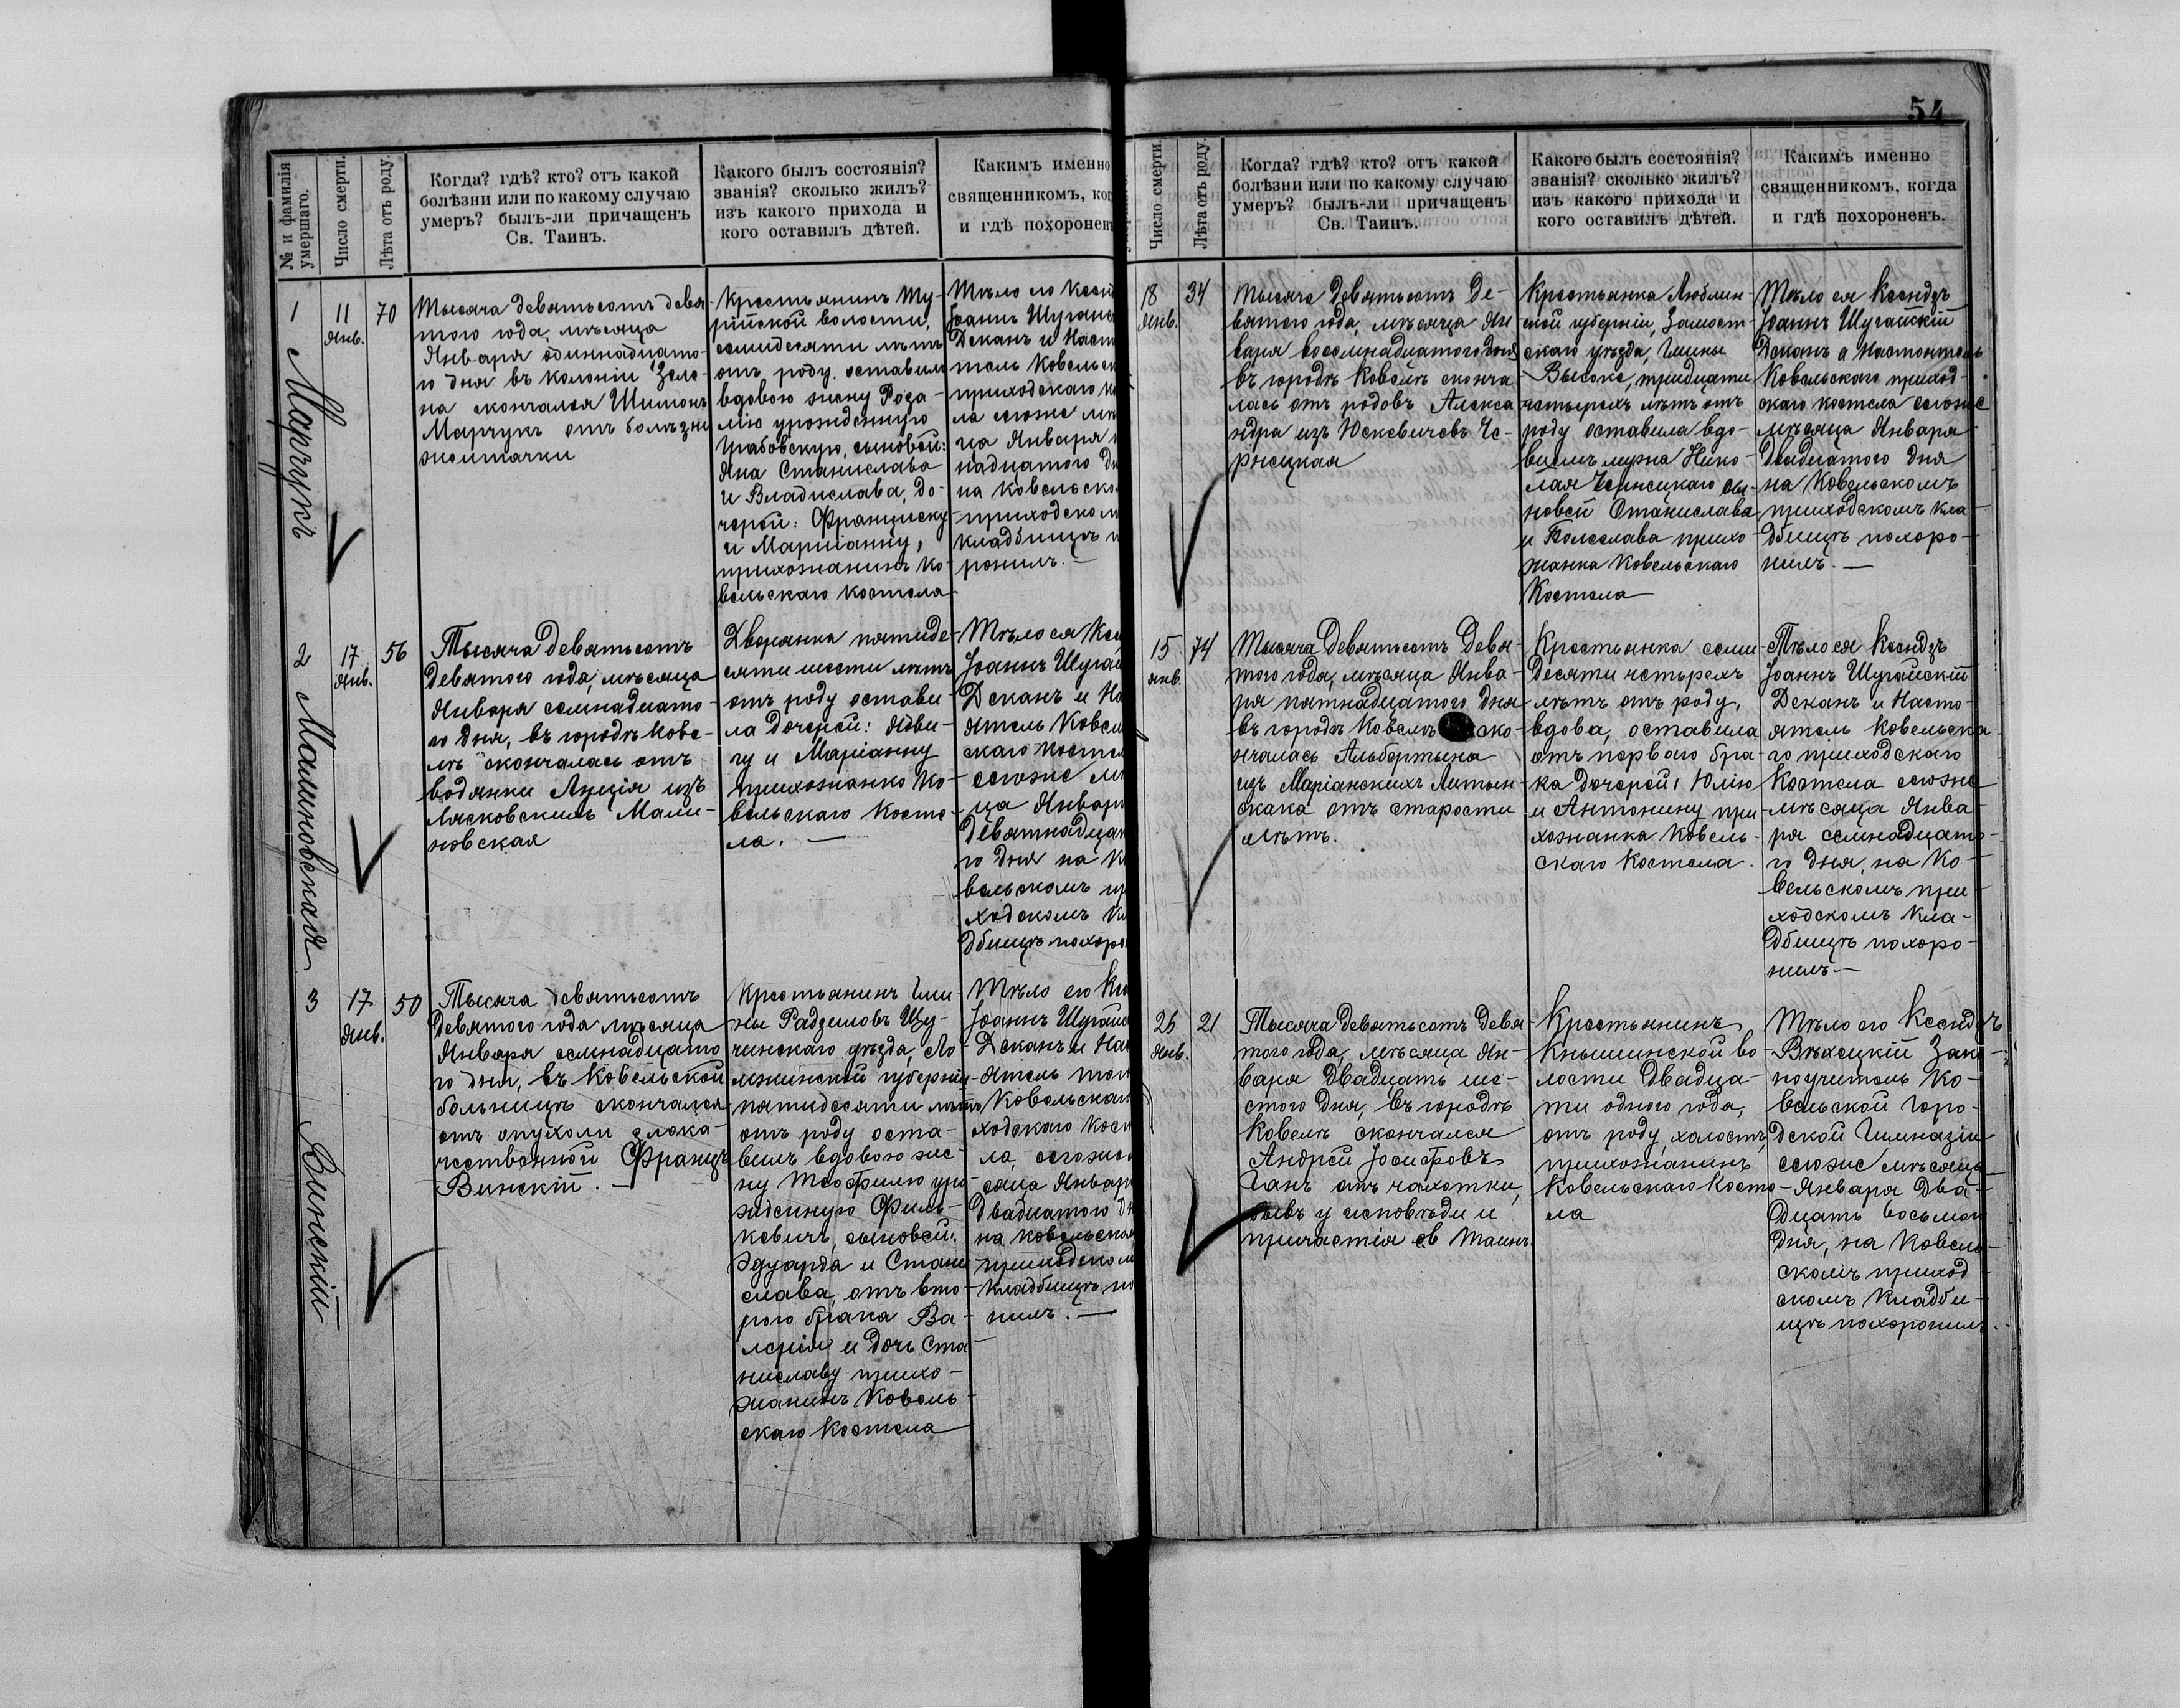 54
№ и фамилія умершаго.
Число смерти.
Лѣта отъ роду.
Когда? гдѣ? кто? отъ какой
болѣзни или по какому случаю
умеръ? былъ-ли причащенъ
Св. Таинъ.
Какого былъ состоянія?
званія? сколько жилъ?
изъ какого прихода и
кого оставилъ дѣтей.
Какимъ именно
священникомъ, ког
и гдѣ похоронен
1
Марчукъ
11
Янв.
70
Тысяча девятьсотъ девя-
того года, мѣсяца
Января одиннадцато-
го дня въ колоніи Зеле-
на скончался Шимонъ
Марчукъ отъ болѣзни
Крестьянинъ Ту-
рійской волости,
семидесяти лѣтъ
отъ роду. оставилъ
вдовою жену Роза-
лію урожденную
Грабовскую, сыновей:
Яна Станислава
и Владислава, до-
черей: Францишку
и Марціанну,
прихожанинъ Ко-
вельскаго костела
Тѣло его Ксен
Іоаннъ Шуганс
Деканъ и Наст
тель Ковельск
приходскаго ко
ла сегоже мѣ
ца Января
надцатого дн
на Ковельско
приходском
кладбищѣ п
ронилъ. —
2
Малиновская
17
Янв.
56
Тысяча девятьсотъ
девятого года, мѣсяца
Января семнадцато-
го дня, въ городѣ Кове-
лѣ скончалась отъ
водянки Луція изъ
Лясковскихъ Мали-
новская
Дворянка пятиде-
сяти шести лѣтъ
отъ роду остави-
ла дочерей: Ядви-
гу и Маріанну
прихожанка Ко-
вельскаго Косте-
ла. —
Тѣло ея Ксен
Іоаннъ Шугай
Деканъ и На
ятель Ковел
скаго костел
сегоже мѣ
ца Январ
девятнадцат
го дня на К
вельскомъ пр
ходскомъ кл
дбищѣ похоро
3
Винскій
17
Янв.
50
Тысяча девятьсотъ
девятого года мѣсяца
Января семнадцато
го дня, въ Ковельской
больницѣ скончался
отъ опухоли злока-
чественной Францъ
Винскій. —
Крестьянинъ Гми
ны Радзиловъ Щу-
чинскаго уѣзда, Ло-
мжинской губерніи
пятидесяти лѣтъ
отъ роду оста-
вилъ вдовою же-
ну Теофилю уро
жденную Филь-
кевичъ, сыновей:
Эдуарда и Стани
слава, отъ вто-
рого брака Ва-
лерія и дочь Ста-
ниславу прихо-
жанинъ Ковель-
скаго Костела
Тѣло его Кс
Іоаннъ Шугайс
Деканъ и Нас
ятель
Ковельскаг
ходскаго кост
ла, сегоже
сяца Январ
двадцатого дн
на Ковельском
приходском
кладбищѣ по
нилъ. —
Число смерти.
Лѣта отъ роду.
Когда? гдѣ? кто? отъ какой
болѣзни или по какому случаю
умеръ? былъ-ли причащенъ
Св. Таинъ.
Какого былъ состоянія?
званія? сколько жилъ?
изъ какого прихода и
кого оставилъ дѣтей.
Какимъ именно
священникомъ, когда
и гдѣ похороненъ.
18
Янв.
34
Тысяча девятьсотъ де-
вятого года, мѣсяца Ян
варя восемнадцатого дня
въ городѣ Ковелѣ сконча
лась отъ родовъ Алекса
ндра изъ Юскевичевъ Че-
Крестьянка Люблин-
ской губерніи, Замост-
скаго уѣзда, Гмины
Высоке, тридцати
четырехъ лѣтъ отъ
роду оставила вдо-
вцемъ мужа Нико-
лая сы-
новей Станислава
и Болеслава прихо
жанка Ковельскаго
Костела
Тѣло ея Ксендзъ
Іоаннъ Шугайскій
Деканъ и Настоятель
Ковельскаго приход-
скаго костела сегоже
мѣсяца Января
двадцатого дня
на Ковельскомъ
приходскомъ кла-
дбищѣ похоро-
нилъ. —
15
янв.
74
Тысяча девятьсотъ девя-
того года, мѣсяца Янва-
ря пятнадцатого дня
въ городѣ Ковелѣ ско-
нчалась Альбертына
изъ Маріанскихъ Литын-
скака отъ старости
лѣтъ.
Крестьянка семи
десяти четырехъ
лѣтъ отъ роду,
вдова, оставила
отъ первого бра-
ка дочерей: Юлію
и Антонину при-
хожанка Ковель-
скаго Костела.
Тѣло ея Ксендзъ
Іоаннъ Шугайскій
Деканъ и Насто-
ятель Ковельска-
го приходскаго
Костела сегоже
мѣсяца Янва-
ря семнадцато-
го дня, на Ко-
вельскомъ при-
ходскомъ кла-
дбищѣ похоро-
нилъ. —
26
Янв.
21
Тысяча девятьсотъ девя-
того года, мѣсяца Ян-
варя двадцать ше-
стого дня, въ городѣ
Ковелѣ скончался
Андрей Іосифовъ
Ганъ отъ чахотки,
бывъ у исповѣди и
причастія св Таинъ.
Крестьянинъ
Кнышинской во-
лости двадца-
ти одного года,
отъ роду, холостъ,
прихожанинъ
Ковельскаго Косте-
ла
Тѣло его Ксендзъ
Зако-
ноучитель Ко-
вельской Горо-
дской Гимназіи
сегоже мѣсяца
Января два-
дцать восьмого
дня, на Ковель-
скомъ приход
скомъ кладби-
щѣ похоронилъ.